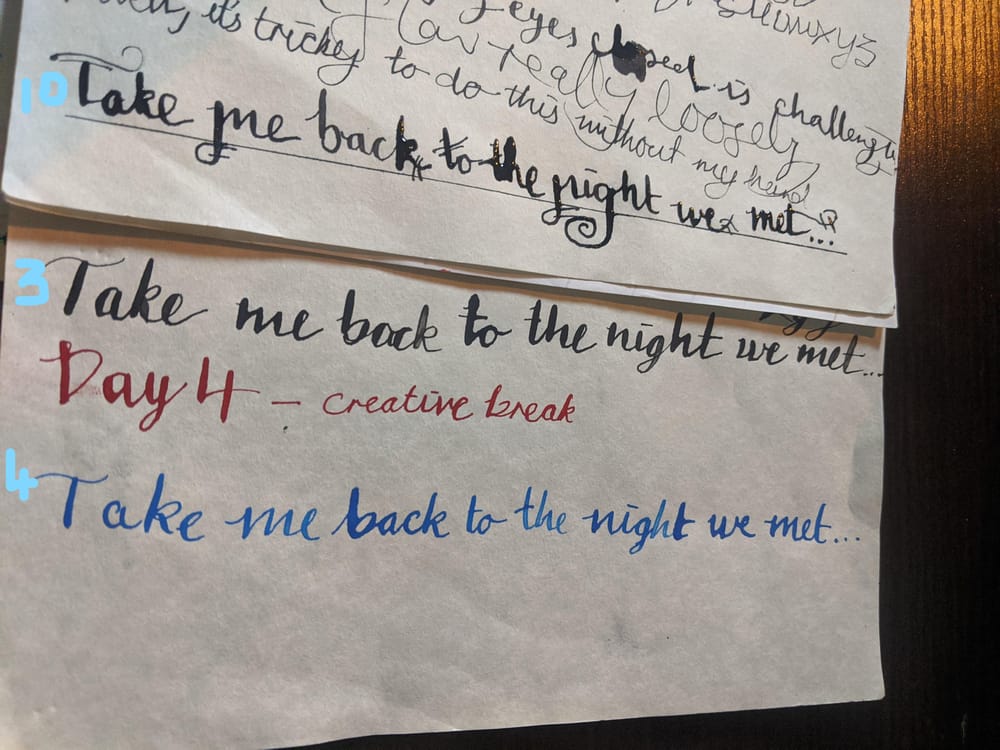 eyes closed is challenging
really loosely
it's tricky to do this without my hand
10 Take me back to the night we met...
3 Take me back to the night we met...
Day 4 - creative break
4 Take me back to the night we met...